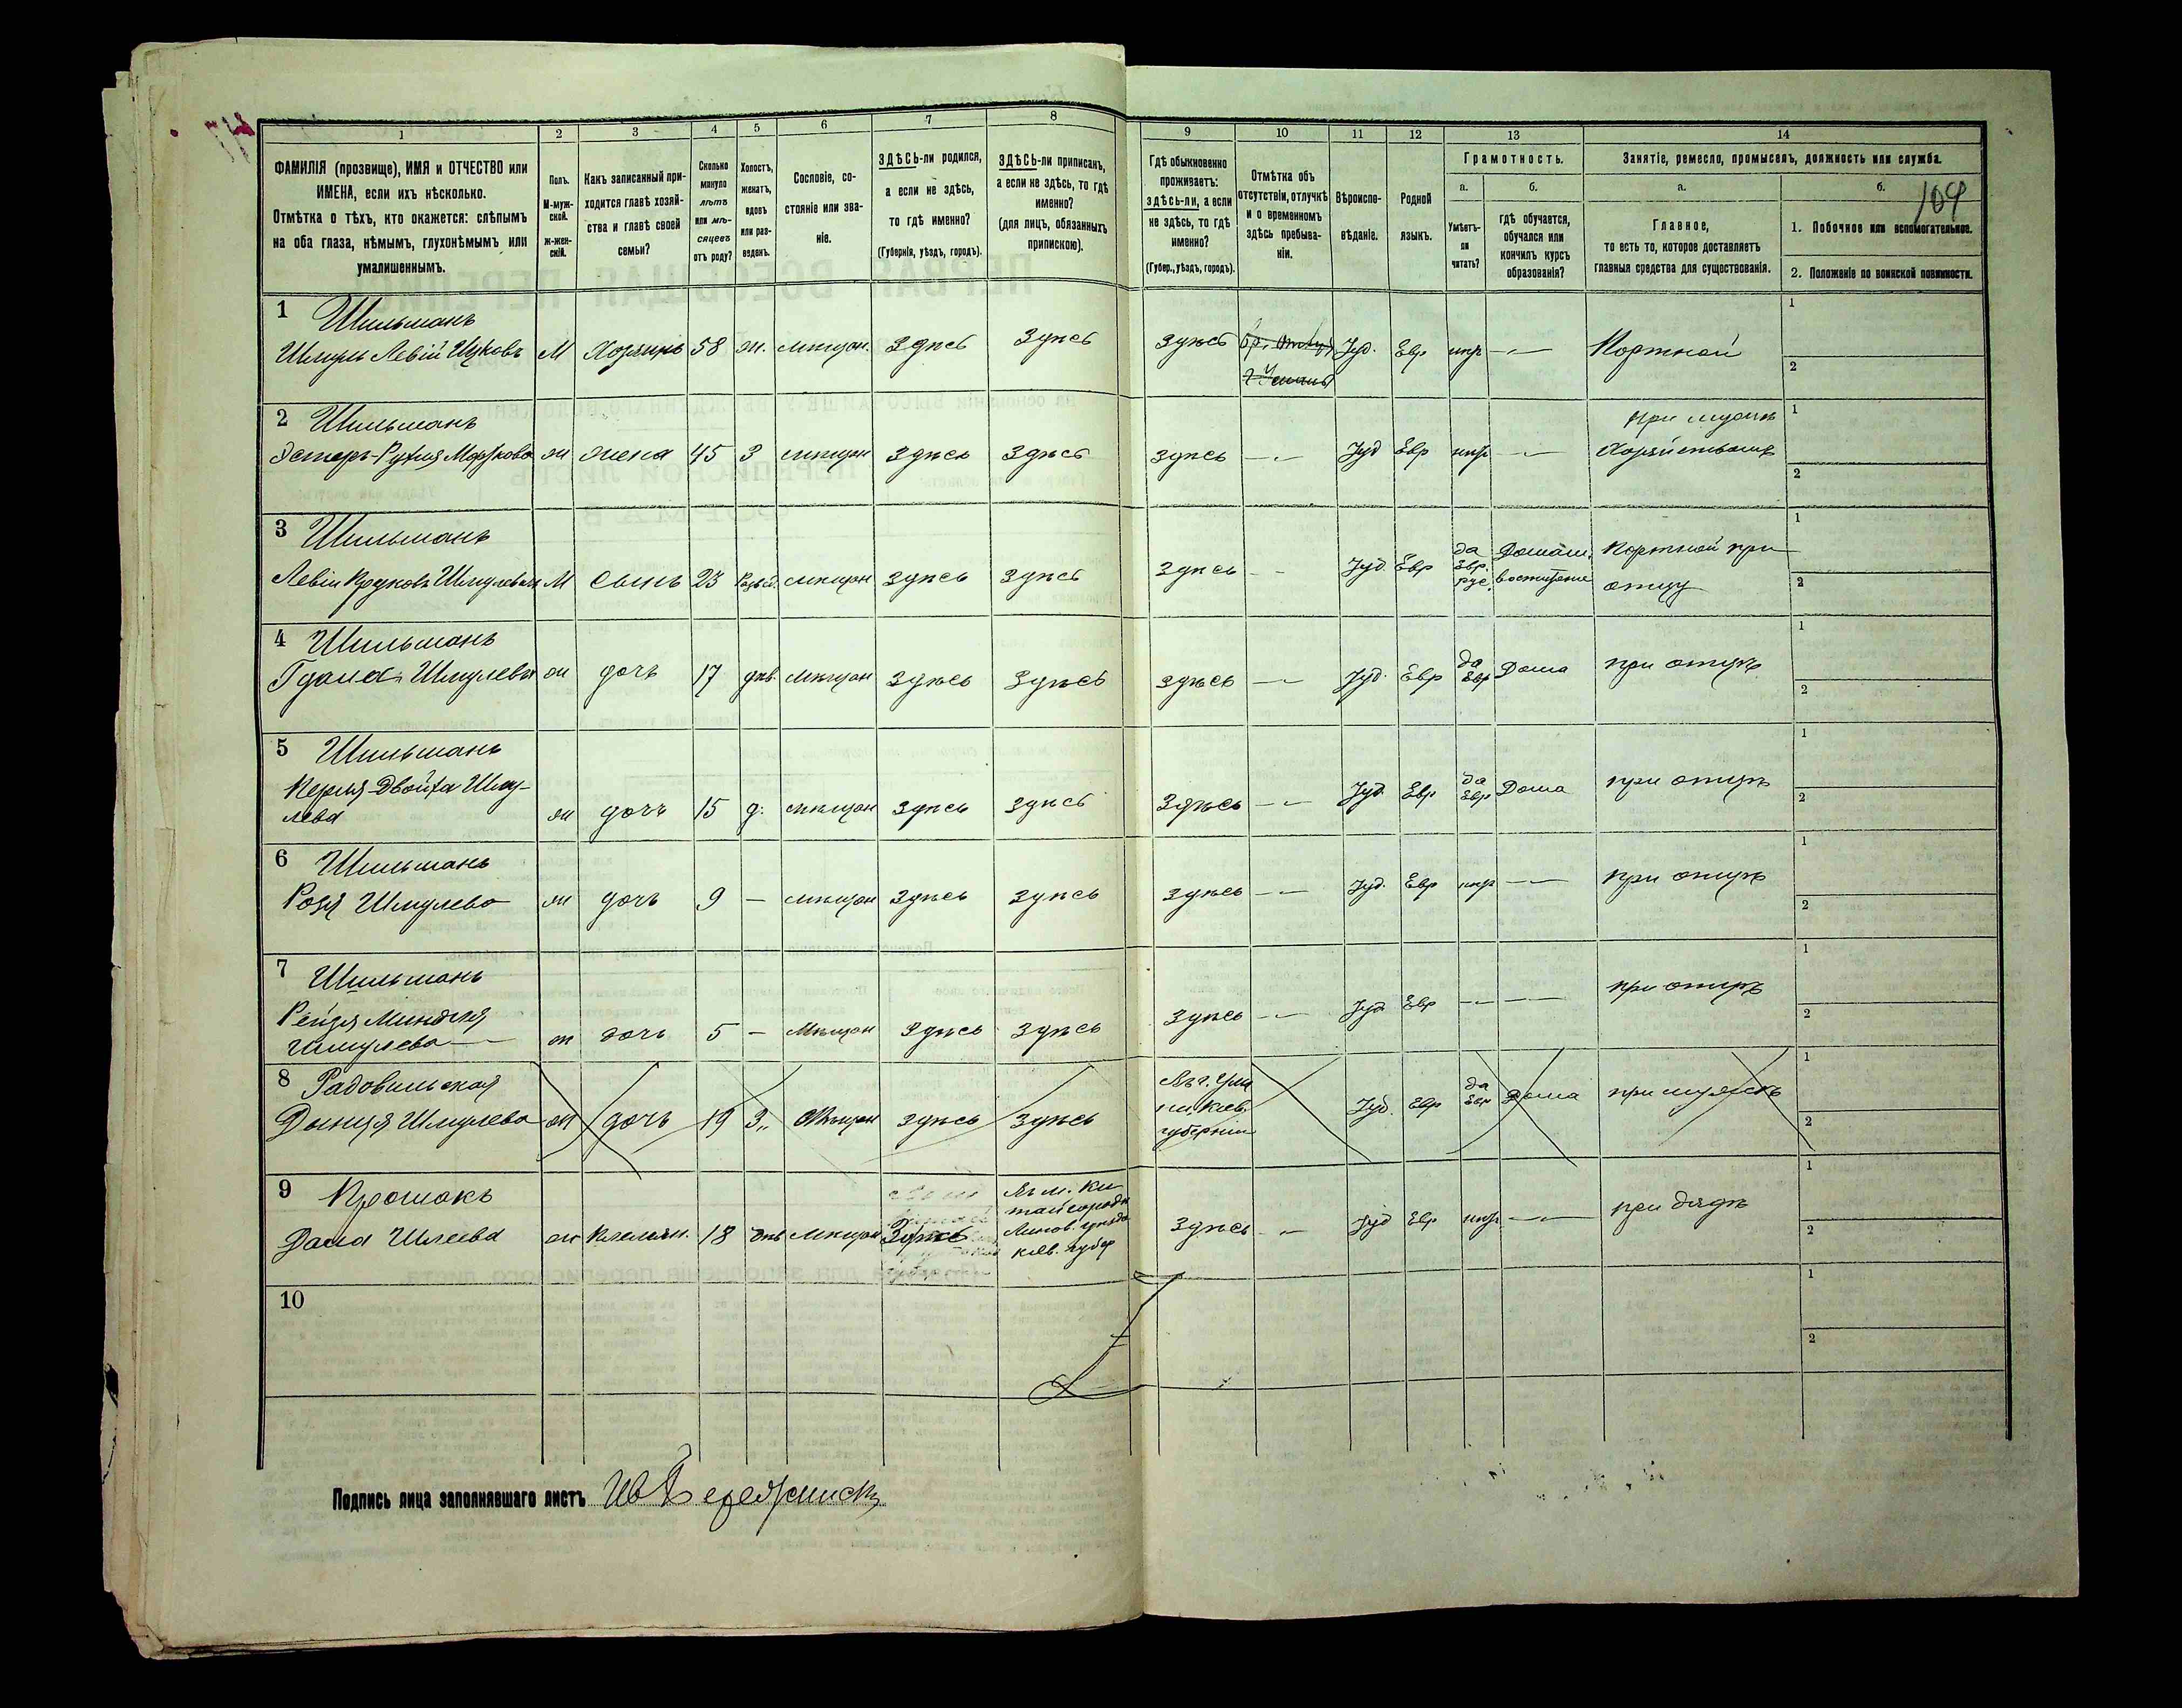 104
1 2 3 4 5 6 7 8 9 10 11 12 13 14
ФАМИЛІЯ (прозвище), ИМЯ и ОТЧЕСТВО или
ИМЕНА, если ихъ нѣсколько.
Отмѣтка о тѣхъ, кто окажется: слѣпымъ
на оба глаза, нѣмымъ, глухонѣмымъ или
умалишеннымъ.
Полъ.
М-муж-
ской.
ж-жен-
скій.
Какъ записанный при-
ходится главѣ хозяй-
ства и главѣ своей
семьи?
Сколько
минуло
лѣтъ
или мѣ-
сяцевъ
отъ роду?
Холостъ,
женатъ,
вдовъ
или раз-
веденъ.
Сословіе, со-
стояніе или зва-
ніе.
ЗДѢСЬ-ли родился,
а если не здѣсь,
то гдѣ именно?
(Губернія, уѣздъ, городъ).
ЗДѢСЬ-ли приписанъ,
а если не здѣсь, то гдѣ
именно?
(для лицъ, обязанныхъ
припискою).
Гдѣ обыкновенно
проживаетъ:
здѣсь-ли, а если
не здѣсь, то гдѣ
именно?
(Губер., уѣздъ, городъ).
Отмѣтка объ
отсутствіи, отлучкѣ
и о временномъ
здѣсь пребыва-
ніи.
Вѣроиспо-
вѣданіе.
Родной
языкъ.
Грамотность.
а.
Умѣетъ-
ли
читать?
б.
гдѣ обучается,
обучался или
кончилъ курсъ
образованія?
Занятіе, ремесло, промыселъ, должность или служба.
а.
Главное,
то есть то, которое доставляетъ
главныя средства для существованія.
б.
1. Побочное или вспомогательное.
2. Положеніе по воинской повинности.
1 Шильманъ
Шмуль Левій Ицковъ М Хозяинъ 58 ж. мѣщан. Здѣсь Здѣсь Здѣсь Іуд. Евр нѣтъ — Портной
1
2
2 Шильманъ при мужѣ
Эстеръ-Рухля Мордкова ж жена 45 З мѣщан Здѣсь Здѣсь Здѣсь — Іуд Евр нѣтъ — Хозяйством
1
2
3 Шильманъ да Домаш. Портной при
Левій Шмулевъ М Сынъ 23 мѣщан Здѣсь Здѣсь Здѣсь — Іуд. Евр Евр. рус. воспитаніе отцу
1
2
4 Шильманъ
Шмулева ж дочь 17 дѣв. мѣщан Здѣсь Здѣсь Здѣсь — Іуд. Евр да Евр Дома при отцѣ
1
2
5 Шильманъ
Перля-Двойра Шму-
лева ж дочь 15 д. мѣщан Здѣсь Здѣсь Здѣсь — Іуд. Евр да Евр Дома при отцѣ
1
2
6 Шильманъ
Розя Шмулева ж дочь 9 — мѣщан Здѣсь Здѣсь Здѣсь — Іуд. Евр нѣтъ — при отцѣ
1
2
7 Шильманъ
Рейзя Миндля
Шмулева ж дочь 5 — мѣщан Здѣсь Здѣсь Здѣсь — Іуд Евр — — при отцѣ
1
2
8 Радовильская
Шмулева ж дочь 19 З. мѣщан Здѣсь Здѣсь Въ г. Ума ни. Кіев. губерніи Іуд. Евр да Евр Дома при мужѣ
1
2
9
Шлеева ж племян. 18 дѣв мѣщан Здѣсь Въ м. Ки тайгородѣ Липов. уѣзда Кіев. губер Здѣсь — Іуд Евр нѣтъ — при дядѣ
1
2
10
1
2
Подпись лица заполнявшаго листъ